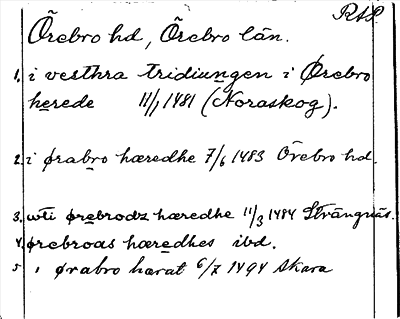 RAP
Örebro hd, Örebro län.
1. i vesthra tridiungen i Ørebro
herede 11/1 1481 (Noraskog).
2. i ørabro hæredhe 7/6 1483 Örebro hd.
3. wti ørebrodz hæredhe 11/3 1484 Strängnäs.
4. ørebroas hæredhes ibd.
5 i ørabro hærat 6/7 1494 Skara